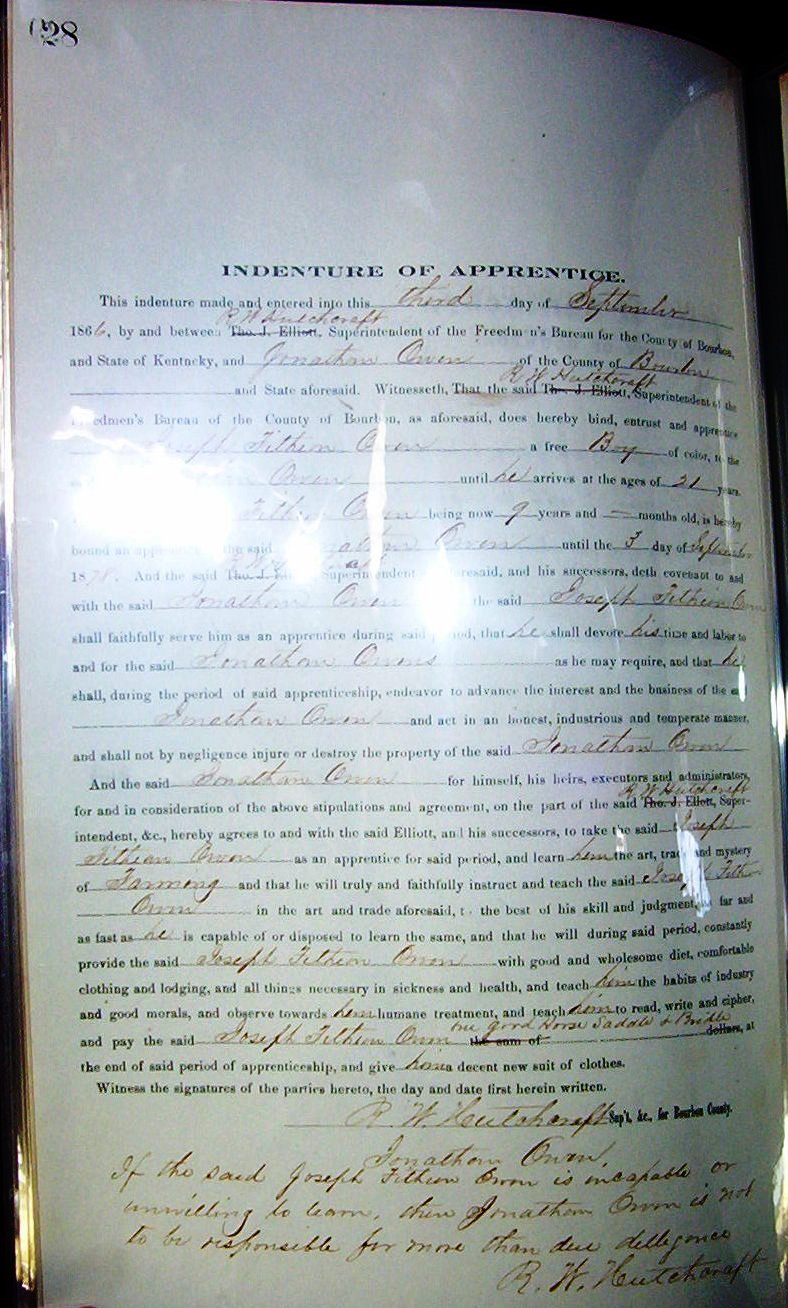 28
INDENTURE OF APPRENTICE.
This indenture made and entered into this third day of September
R W Hutchcraft
1866, by and between Tho. J. Elliott, Superintendent of the Freedmen's Bureau for the County of Bourbon,
and State of Kentucky, and Jonathan Owen of the County of Bourbon
R W Hutchcraft
and State aforesaid. Witnesseth, That the said Tho. J. Elliott, Superintendent of the
Freedmen's Bureau of the County of Bourbon, as aforesaid, does hereby bind, entrust and apprentice
Joseph Fithian Owen a free Boy of color, to the
Owen until he arrives at the ages of 21 years.
Owen being now 9 years and — months old, is hereby
bound an apprentice the said Jonathan Owen until the 3 day of September
1878. And the said Tho. J. Superintendent aforesaid, and his successors, doth covenant to and
with the said Jonathan Owen the said Joseph Fithian Owen
shall faithfully serve him as an apprentice during said period, that he shall devote his time and labor to
and for the said Jonathan Owens as he may require, and that he
shall, during the period of said apprenticeship, endeavor to advance the interest and the business of the said
Jonathan Owen and act in an honest, industrious and temperate manner,
and shall not by negligence injure or destroy the property of the said Jonathan Owen
And the said Jonathan Owen for himself, his heirs, executors and administrators,
R W Hutchcraft
for and in consideration of the above stipulations and agreement, on the part of the said Tho. J. Ellott, Super-
intendent, &c., hereby agrees to and with the said Elliott, and his successors, to take the said Joseph
Fithian Owen as an apprentice for said period, and learn him the art, trade and mystery
of Farming and that he will truly and faithfully instruct and teach the said Joseph Fithian
Owen in the art and trade aforesaid, to the best of his skill and judgment, as far and
as fast as he is capable of or disposed to learn the same, and that he will during said period, constantly
provide the said Joseph Fithian Owen with good and wholesome diet, comfortable
clothing and lodging, and all things necessary in sickness and health, and teach him the habits of industry
and good morals, and observe towards him humane treatment, and teach him to read, write and cipher,
one good Horse Saddle & Bridle
and pay the said Joseph Fithian Owen the sum of dollars, at
the end of said period of apprenticeship, and give him a decent new suit of clothes.
Witness the signatures of the parties hereto, the day and date first herein written.
R. W. Hutchcraft Sup't, &c., for Bourbon County.
Jonathan Owen.
If the said Joseph Fithian Owen is incapable or
unwilling to learn, then Jonathan Owen is not
to be responsible for more than due dilligence
R. W. Hutchcraft